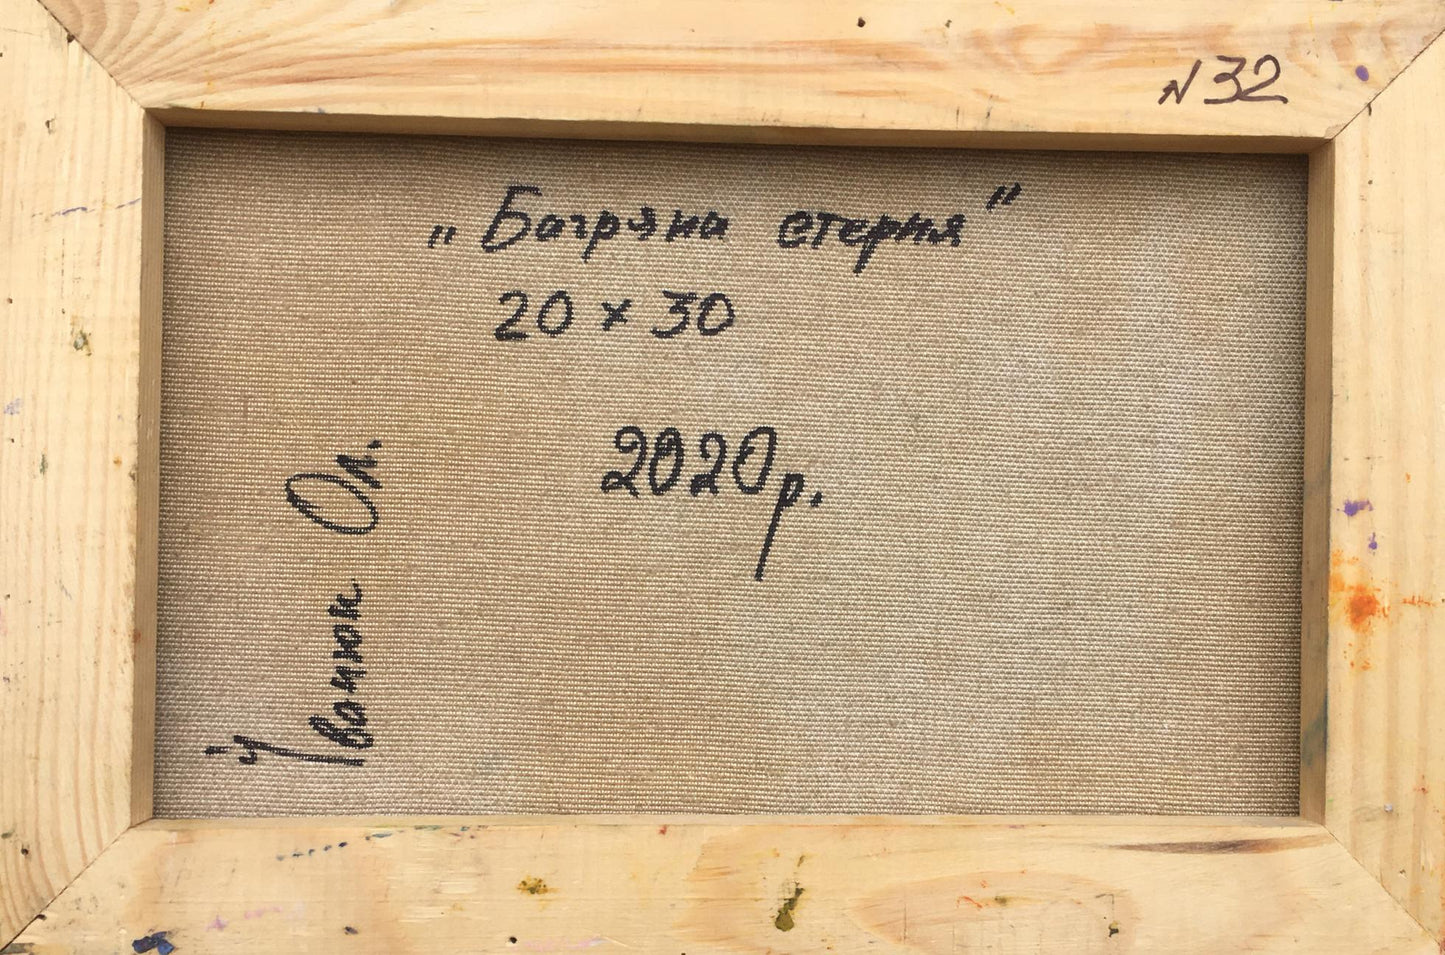 N32
„Багряна стерня"
20 × 30
2020р.
Іванюк Ол.